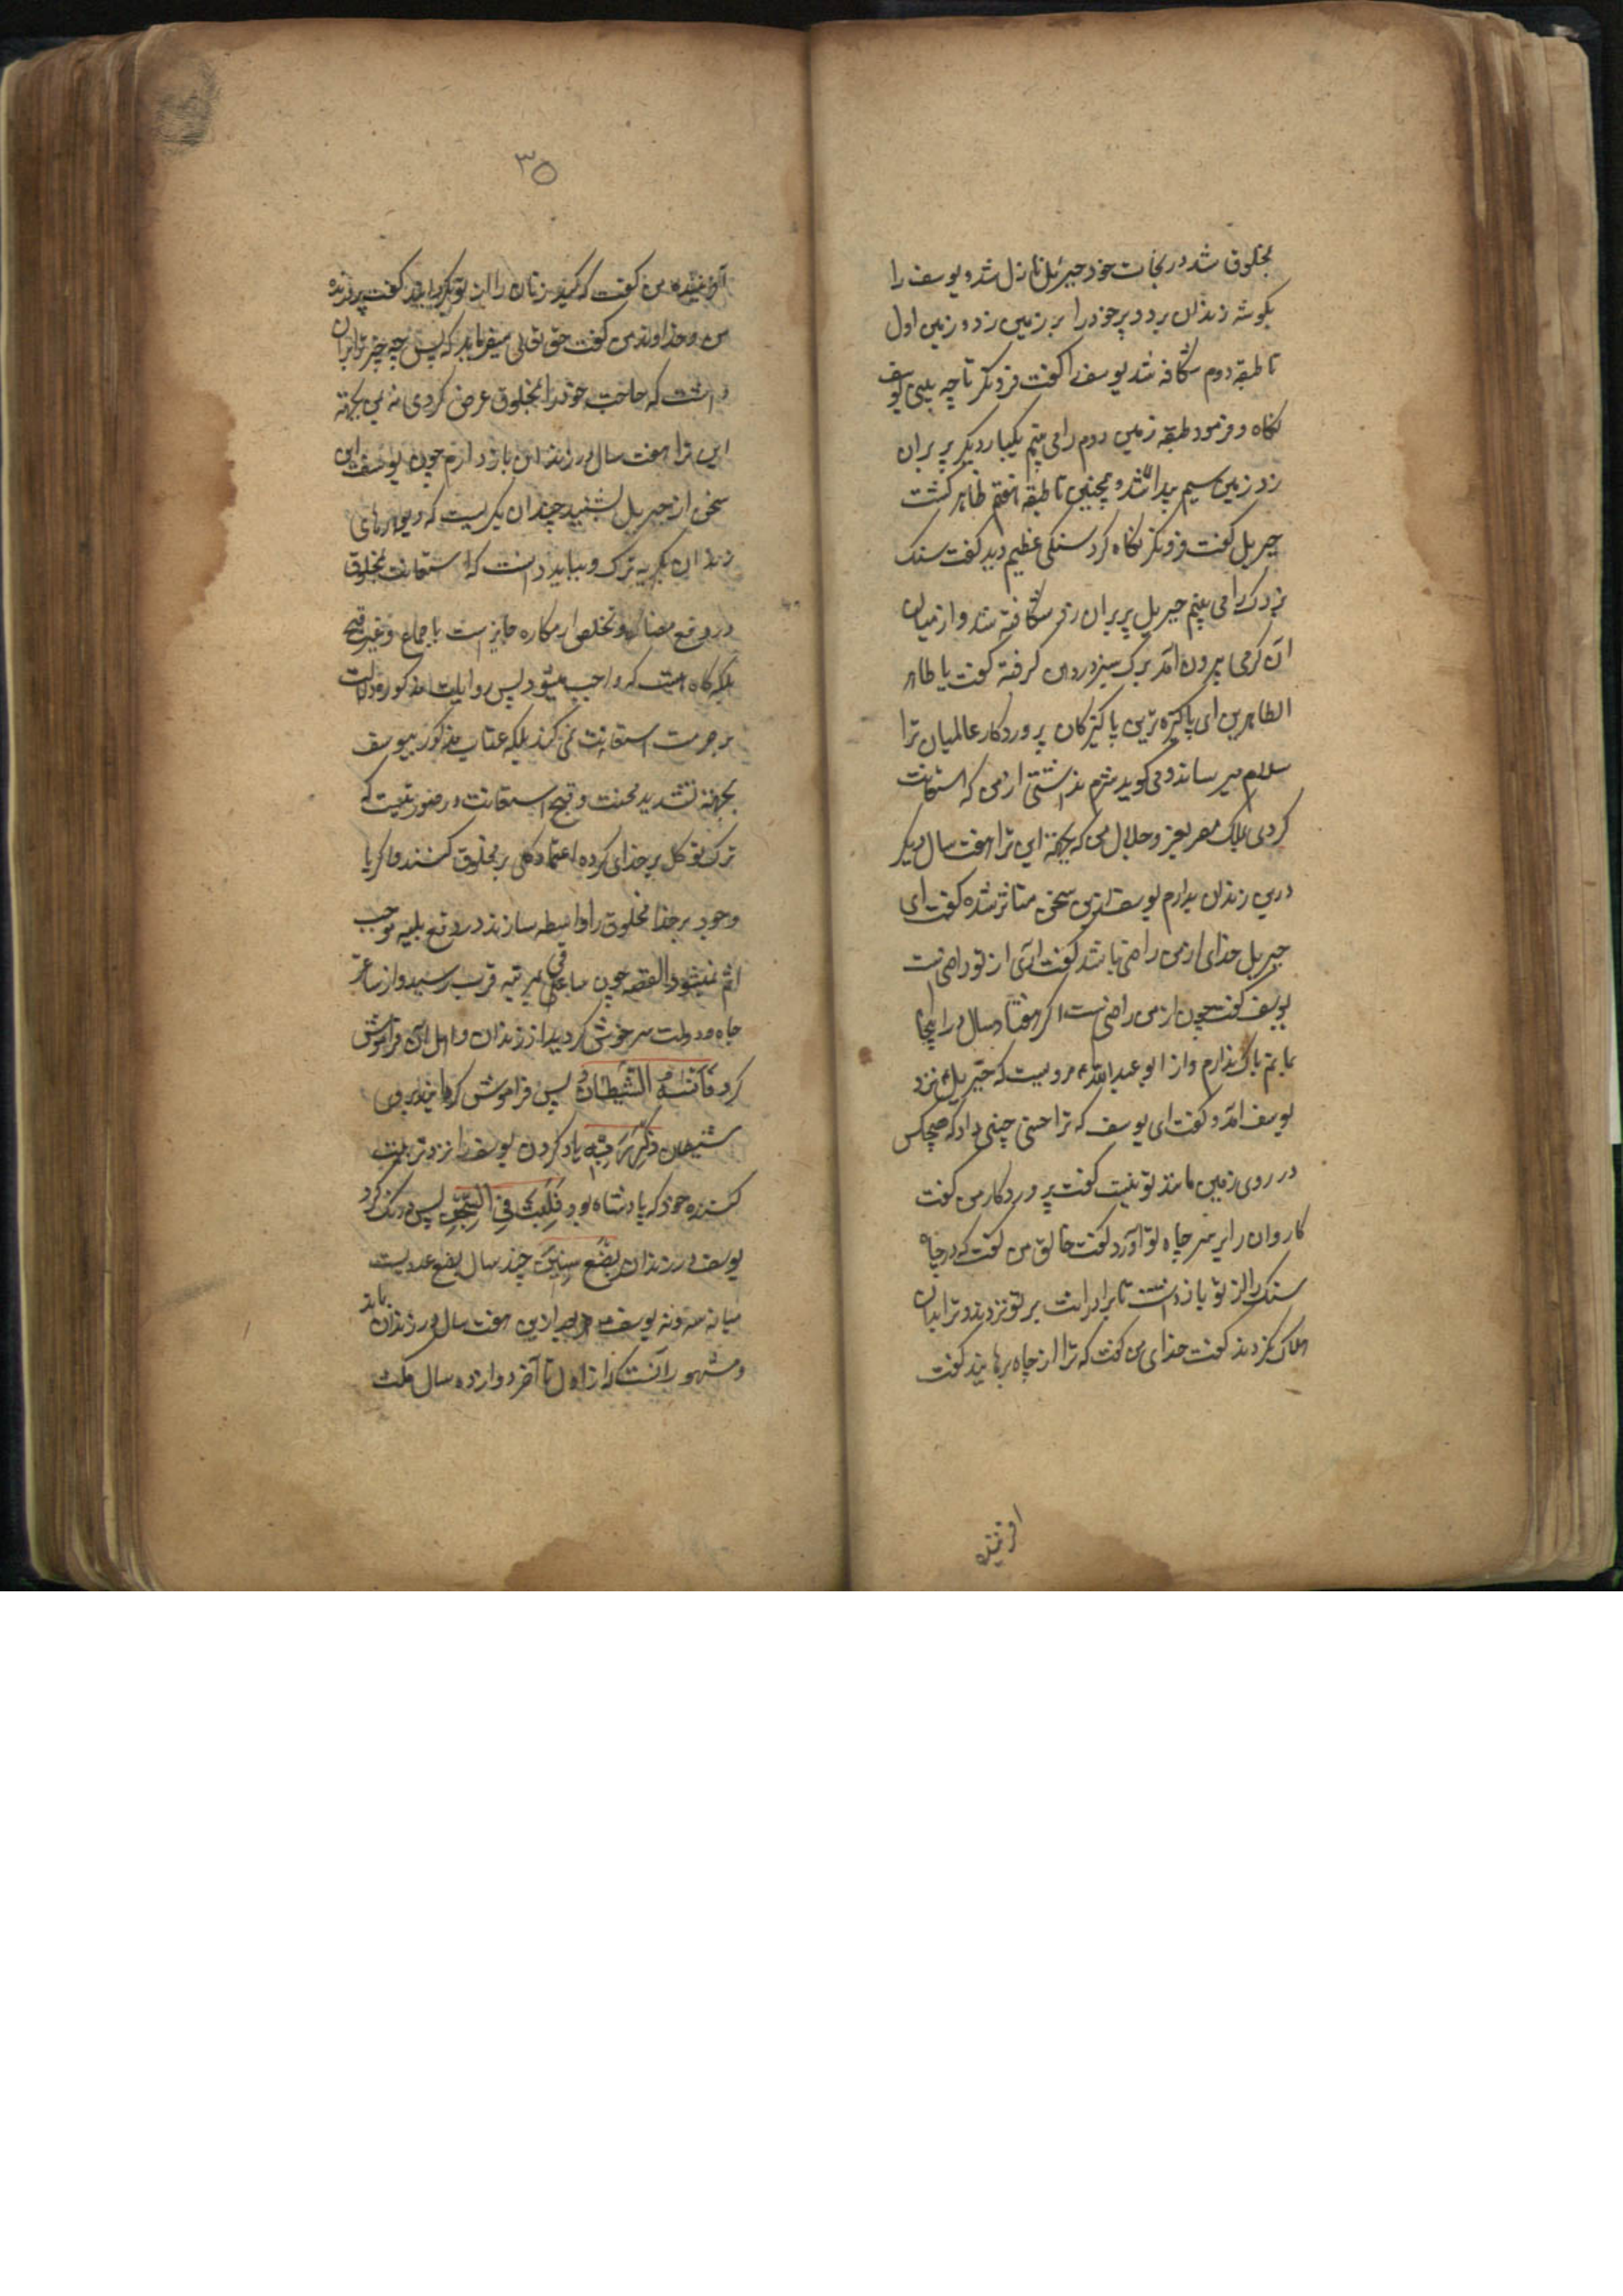 بمخلوق شد در نجات خود جبرئیل نازل شد و یوسف را
بکوشه زندان برد و پر خود را بر زمین زد و زمین اول
تا طبقه دوم شکافه شد یوسف را کفت فرو نکر تا چه بینی یوسف
نکاه و فرمود طبقه زمین دوم را می بینم یکبار دیکر پر بران
زد زمین سیم پیدا شد و همچنین تا طبقه هفتم ظاهر کشت
جبریل کفت فرو نکر نکاه کرد سنکی عظیم دید کفت سنک
بزرک را می بینم جبریل پر بران زد شکافته شد و از میان
ان کرمی بیرون امد برک سبز در دهان کرفته کفت یا طاهر
الطاهرین ای پاکیزه ترین پاکیزکان پروردکار عالمیان ترا
سلام میرساند و می کوید شرم نداشتی از من که استعانت
کردی بملک مصر بعز و جلال من که بجهة این ترا هفت سال دیکر
درین زندان بدارم یوسف ازین سخن متاثر شده کفت ای
جبریل خدای از من راضی باشد کفت آری از تو راضی است
یوسف کفت چون از من راضی است اکر هفتاد سال در اینجا
بمانم باک ندارم و از ابو عبدالله مرویست که جبریل نزد
یوسف امد و کفت ای یوسف که ترا حسنی چنین داد که هیچکس
در روی زمین مانند تو نیست کفت پروردکار من کفت
کاروان را بر سر چاه تو آورد کفت خالق من کفت که در چاه
سنک را از تو باز داشت تا برادرانت بر تو نزدند و ترا بدان
هلاک نکردند کفت خدای من کفت که ترا از چاه برهانید کفت
افریننده
۳۵
آفریننده من کفت که کید زنان را از تو بکردانید کفت پرورنده
من و خداوند من کفت حق تعالی میفرماید که پس چه چیز ترا بران
داشت که حاجت خود را بمخلوق عرض کردی نه بمن بجهة
این ترا هفت سال در زندان باز دارم چون یوسف این
سخن از جبریل بشنید چندان بکریست که دیوارهای
زندان بکریه و بباید دانست که استعانت بمخلوق
در دفع مضار و تخلص از مکاره جایز است باجماع و غیر قبیح
بلکه کاه هست که واجب میشود پس روایات مذکوره دلالت
بر حرمت استعانت نمی کند بلکه عتاب مذکور بیوسف
بجهة تشدید محنت و قبح استعانت در صورتیست که
ترک توکل بر خدای کرده اعتماد کلی بر مخلوق کنند و اکر با
وجود بر خدا مخلوق را واسطه سازند در دفع بلیه موجب
اثم نمیشود القصه چون ساقی بمرتبه قرب رسید و از ساغر
جاه و دولت سرخوش کردید از زندان و اهل آن فراموش
کرد فَاَنْسٰیهُ الشَّیْطَانُ پس فراموش کردانید بروی
شیطان ذِکْرَ رَبِّهِ یاد کردن یوسف را نزد تربیت
کننده خود که پادشاه بود فَلَبِثَ فِی السِّجْنِ پس درنک کرد
یوسف در زندان بِضْعَ سِنِینَ چند سال بضع عددیست
میانه سه و نه یوسف بعد ازین هفت سال در زندان بماند
و مشهور آنست که از اول تا آخر دوازده سال مکث